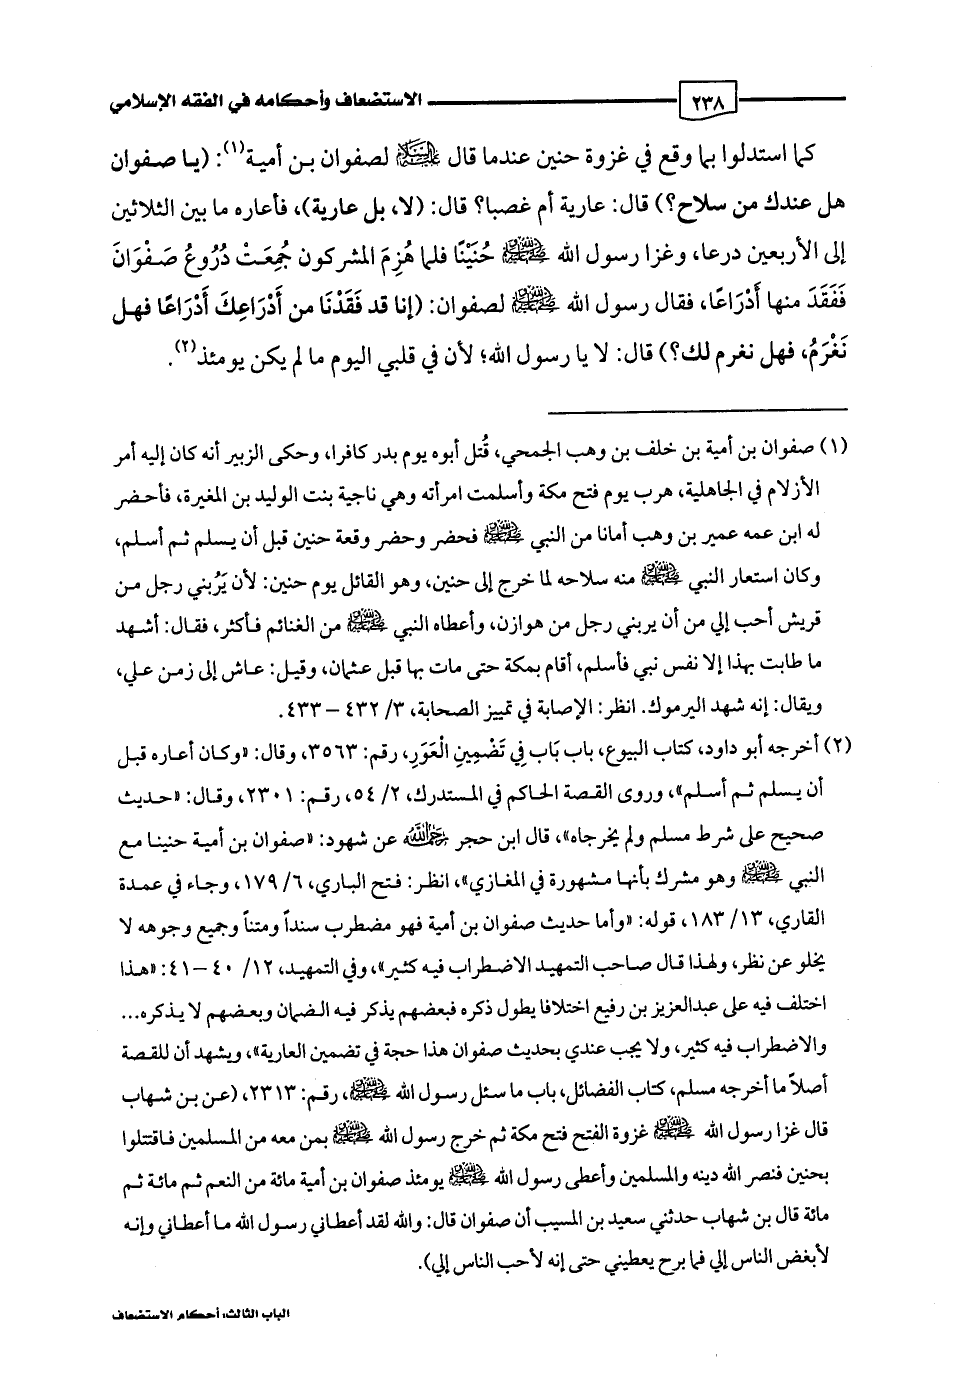 ٢٣٨ الاستضعاف وأحكامه في الفقه الإسلامي
كما استدلوا بما وقع في غزوة حنين عندما قال ﷺ لصفوان بن أمية(١): (يا صفوان
هل عندك من سلاح؟) قال: عارية أم غصبا؟ قال: (لا، بل عارية)، فأعاره ما بين الثلاثين
إلى الأربعين درعا، وغزا رسول الله ﷺ حُنَيْنًا فلما هُزِمَ المشركون جُمِعَتْ دُرُوعُ صَفْوَانَ
فَفَقَدَ منها أَدْرَاعًا، فقال رسول الله ﷺ لصفوان: (إنا قد فَقَدْنَا من أَدْرَاعِكَ أَدْرَاعًا فهل
نَغْرَمُ، فهل نغرم لك؟) قال: لا يا رسول الله؛ لأن في قلبي اليوم ما لم يكن يومئذ(٢).
(١) صفوان بن أمية بن خلف بن وهب الجمحي، قُتل أبوه يوم بدر كافرا، وحكى الزبير أنه كان إليه أمر
الأزلام في الجاهلية، هرب يوم فتح مكة وأسلمت امرأته وهي ناجية بنت الوليد بن المغيرة، فأحضر
له ابن عمه عمير بن وهب أمانا من النبي ﷺ فحضر وحضر وقعة حنين قبل أن يسلم ثم أسلم،
وكان استعار النبي ﷺ منه سلاحه لما خرج إلى حنين، وهو القائل يوم حنين: لأن يَرُبني رجل من
قريش أحب إلي من أن يربني رجل من هوازن، وأعطاه النبي ﷺ من الغنائم فأكثر، فقال: أشهد
ما طابت بهذا إلا نفس نبي فأسلم، أقام بمكة حتى مات بها قبل عثمان، وقيل: عاش إلى زمن علي،
ويقال: إنه شهد اليرموك. انظر: الإصابة في تمييز الصحابة، ٣/ ٤٣٢ – ٤٣٣.
(٢) أخرجه أبو داود، كتاب البيوع، باب بَاب فِي تَضْمِينِ الْعَوَرِ، رقم: ٣٥٦٣، وقال: «وكان أعاره قبل
أن يسلم ثم أسلم»، وروى القصة الحاكم في المستدرك، ٢/ ٥٤، رقم: ٢٣٠١، وقال: «حديث
صحيح على شرط مسلم ولم يخرجاه»، قال ابن حجر رحمه الله عن شهود: «صفوان بن أمية حنينا مع
النبي ﷺ وهو مشرك بأنها مشهورة في المغازي»، انظر: فتح الباري، ٦/ ١٧٩، وجاء في عمدة
القاري، ١٣/ ١٨٣، قوله: «وأما حديث صفوان بن أمية فهو مضطرب سنداً ومتناً وجميع وجوهه لا
يخلو عن نظر، ولهذا قال صاحب التمهيد الاضطراب فيه كثير»، وفي التمهيد، ١٢/ ٤٠ –٤١: «هذا
اختلف فيه على عبدالعزيز بن رفيع اختلافا يطول ذكره فبعضهم يذكر فيه الضمان وبعضهم لا يذكره...
والاضطراب فيه كثير، ولا يجب عندي بحديث صفوان هذا حجة في تضمين العارية»، ويشهد أن للقصة
أصلاً ما أخرجه مسلم، كتاب الفضائل، باب ما سئل رسول الله ﷺ، رقم: ٢٣١٣، (عن بن شهاب
قال غزا رسول الله ﷺ غزوة الفتح فتح مكة ثم خرج رسول الله ﷺ بمن معه من المسلمين فاقتتلوا
بحنين فنصر الله دينه والمسلمين وأعطى رسول الله ﷺ يومئذ صفوان بن أمية مائة من النعم ثم مائة ثم
مائة قال بن شهاب حدثني سعيد بن المسيب أن صفوان قال: والله لقد أعطاني رسول الله ما أعطاني وإنه
لأبغض الناس إلي فما برح يعطيني حتى إنه لأحب الناس إلي).
الباب الثالث: أحكام الاستضعاف